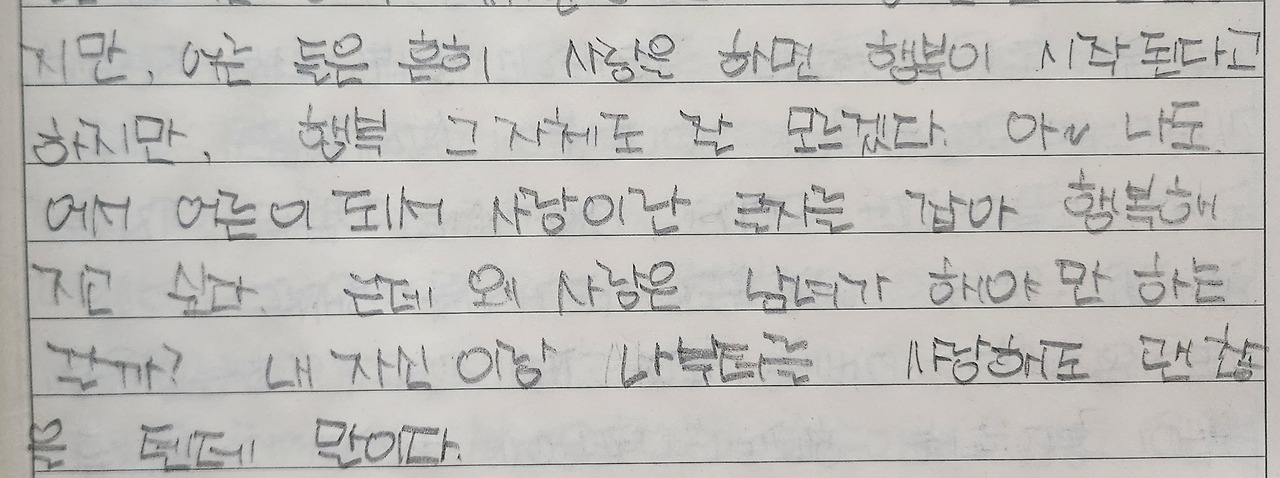 지만, 어른 들은 흔히 사랑을 하면 행복이 시작 된다고
하지만, 행복 그 자체도 잘 모르겠다. 아~ 나도.
어서 어른이 되서 사랑이란 를 갑아 행복해
지고 싶다. 는데 왜 사랑은 남녀가 해야 만 하는
걸까? 내 자신 이랑 나부터를 사랑해도 괜찮
을 텐데 말이다.